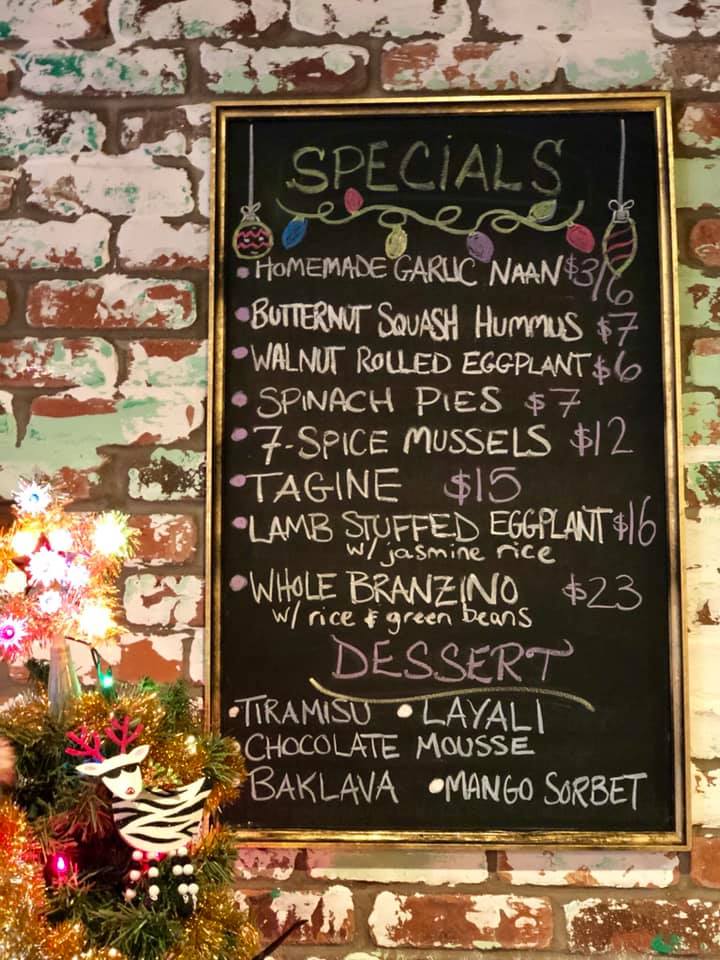 SPECIALS
• HOMEMADE GARLIC NAAN $3/6
• BUTTERNUT SQUASH HUMMUS $7
• WALNUT ROLLED EGGPLANT $6
• SPINACH PIES $7
• 7-SPICE MUSSELS $12
• TAGINE $15
• LAMB STUFFED EGGPLANT $16
w/ jasmine rice
• WHOLE BRANZINO $23
w/ rice & green beans
DESSERT
• TIRAMISU • LAYALI
CHOCOLATE MOUSSE
BAKLAVA • MANGO SORBET